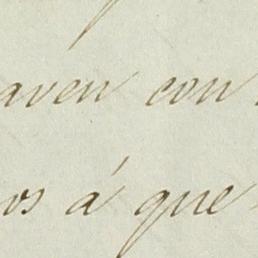 aven con
os á que